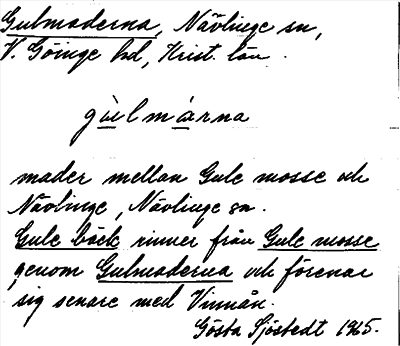 Gulmaderna, Nävlinge sn,
V. Göinge hd, Krist. län.
gùlmàrna
mader mellan Gule mosse och
Nävlinge, Nävlinge sn.
Gule bäck rinner från Gule mosse
genom Gulmaderna och förenar
sig senare med Vinnån.
Gösta Sjöstedt 1965.